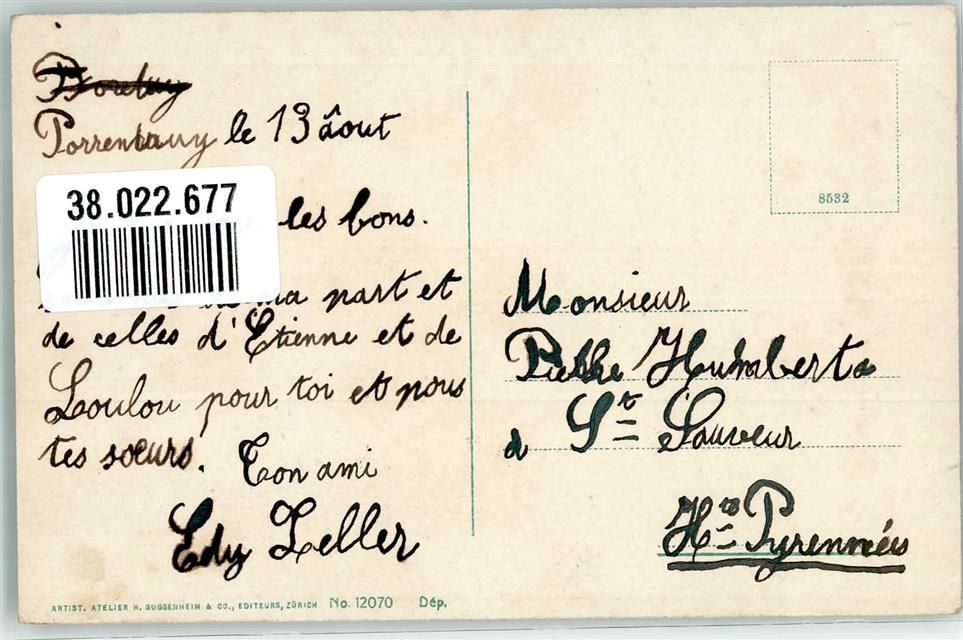 Porrentruy
Porrentruy le 13 âout
38.022.677
les bons.
ma part et
de celles d'Etienne et de
Loulou pour toi et pous
tes sœurs. Ton ami
Edy Zeller
8532
Monsieur
Humberto
à St Sauveur
Htes Pyrennées
ARTIST. ATELIER H. GUGGENHEIM & CO., EDITEURS, ZÜRICH No. 12070 Dép.